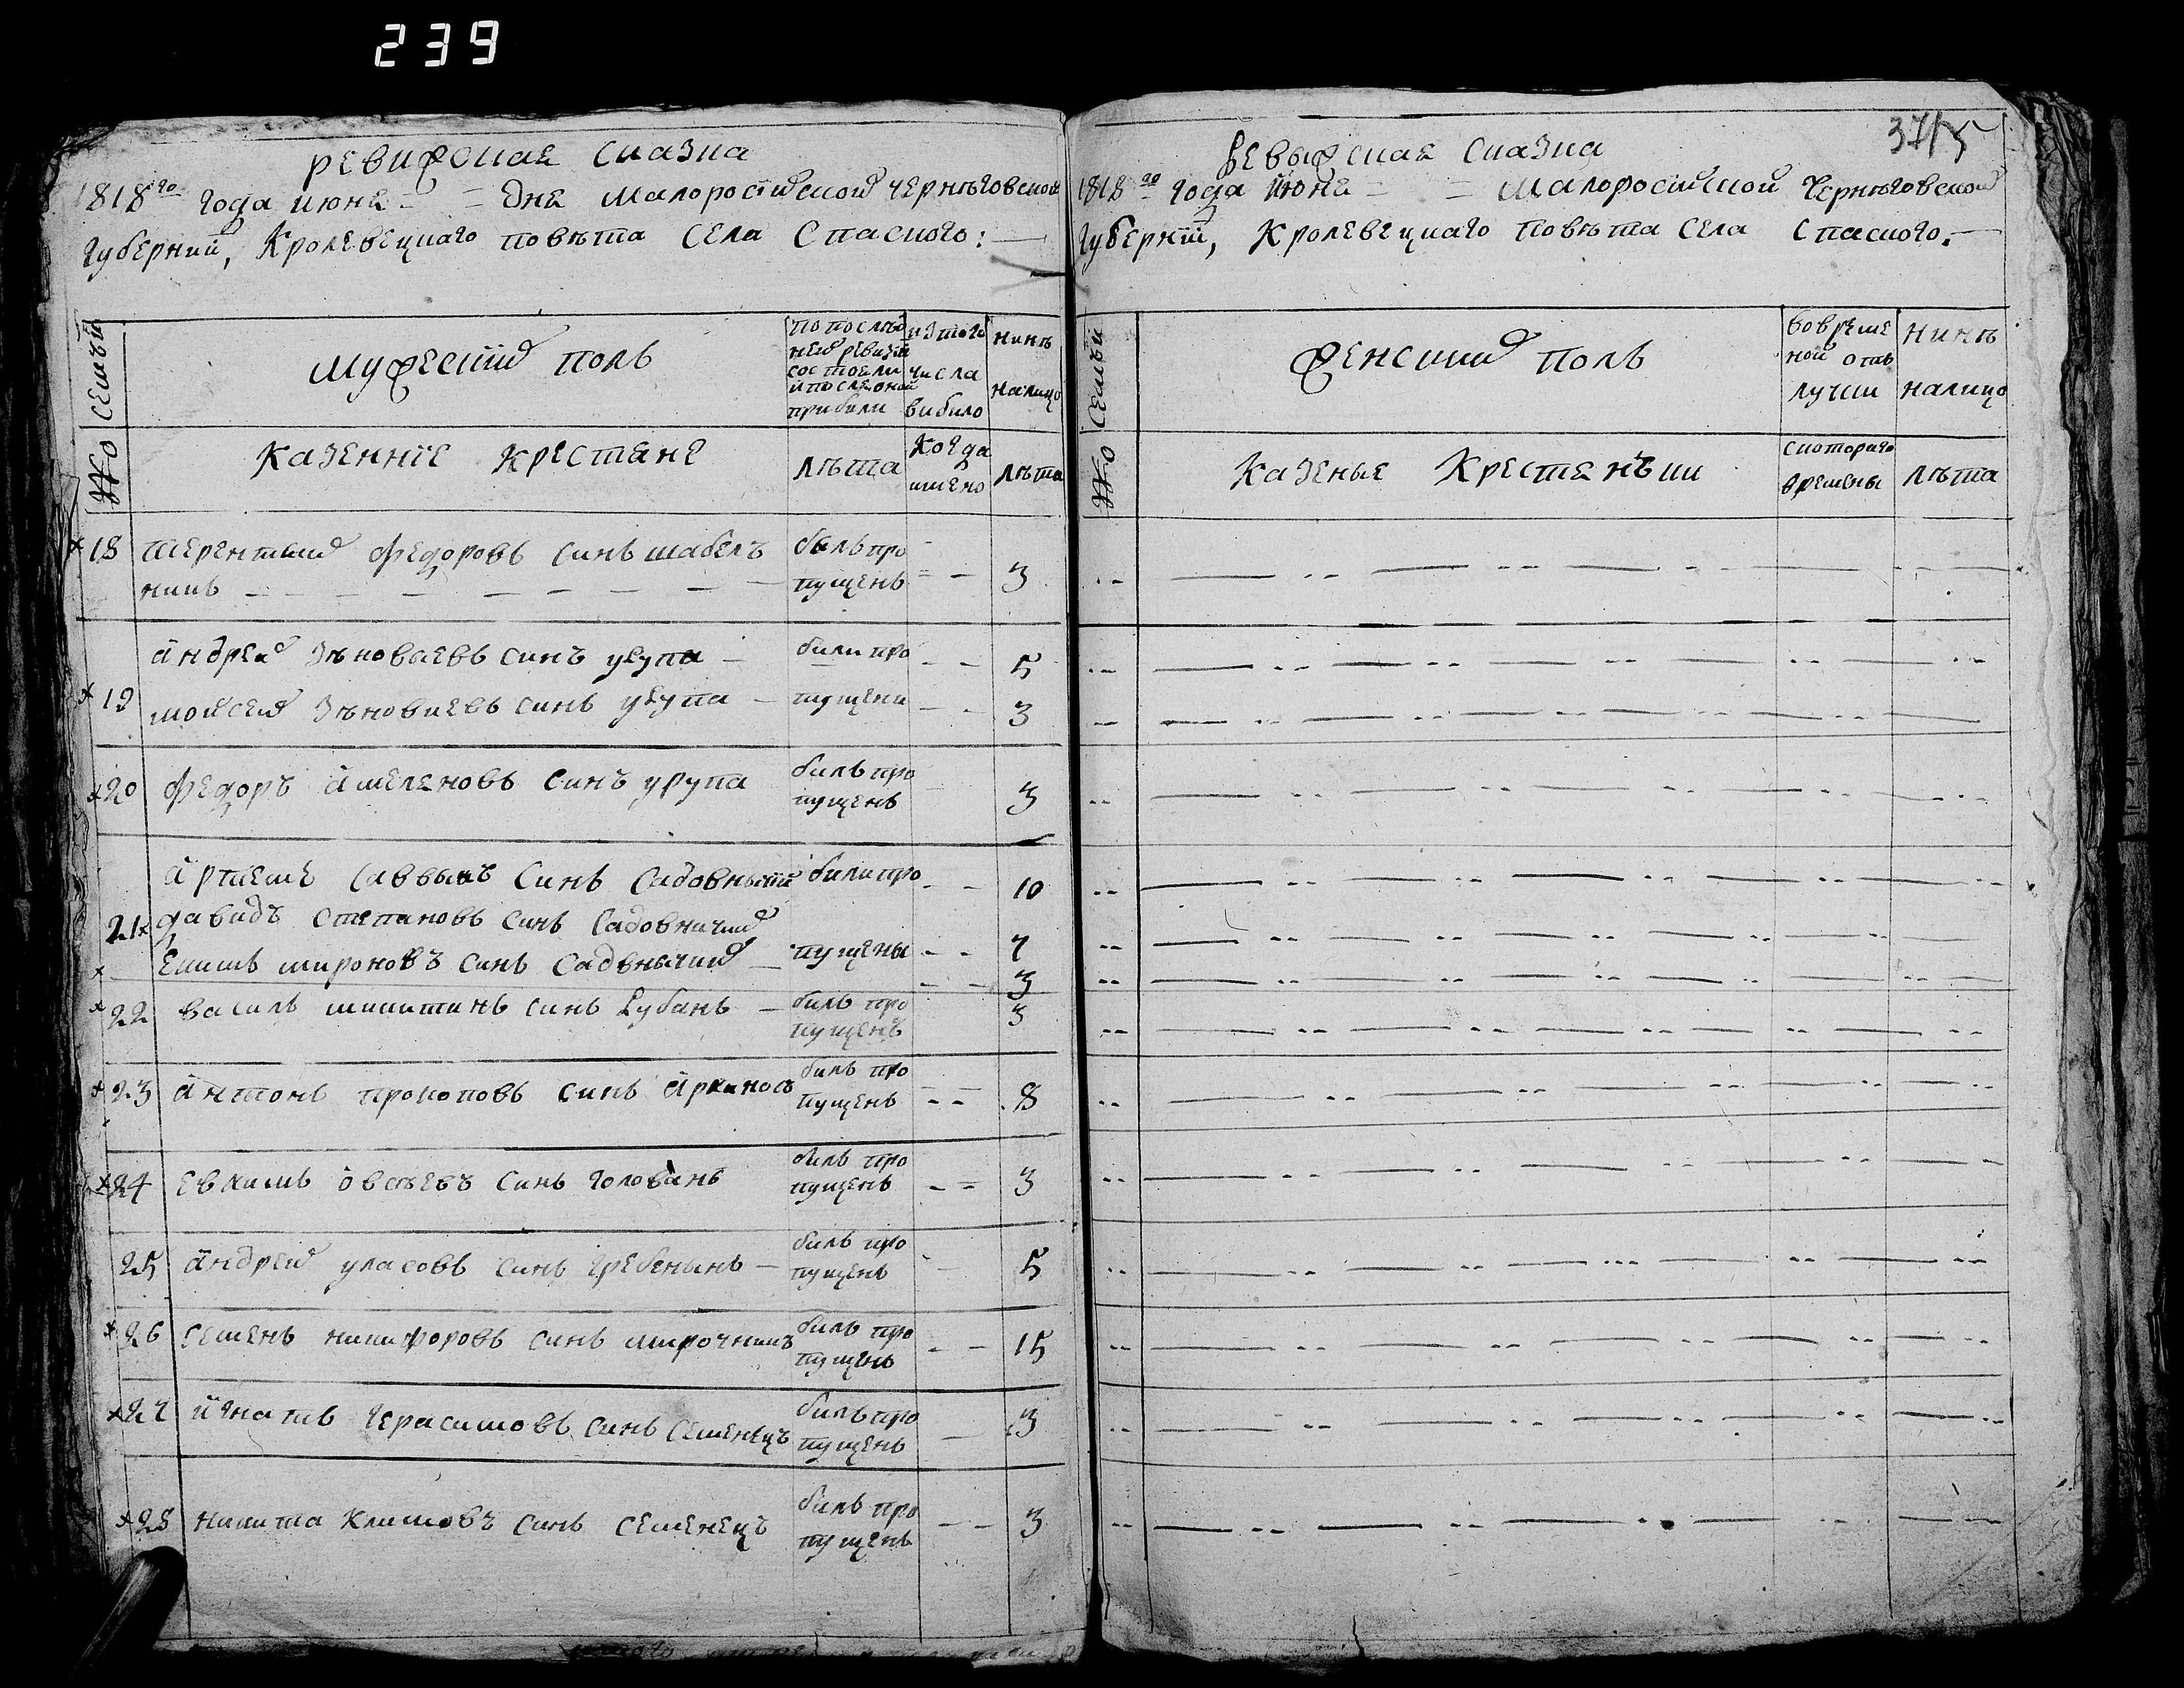 239
ревизская сказка
1818го года июня - - дня малоросийской чернѣговской
губернии, Кролевецкаго повѣта села Спаского:
семьи
мужеский поль
попослѣд
ней ревизии
состояли
и после оной
прибили
изтого
числа
вибило
нинѣ
налицо
№
казенние крестяне
лѣта
когда
имено
лѣта
18 терентий федоровъ синь шабелъ
никъ
быль про
пущень
3
андрей зѣновыевъ синъ
били про
5
19
мойсей зѣновиевъ синь
пущени
3
20 федоръ синъ
биль про
пущень
3
артемъ саввинъ синь садовничий били про
10
21 давидъ степановъ синь садовничий
пущены
7
мироновъ синь садовничий
3
22 василь никитинь синь рубань
биль про
пущенъ
3
23 антонь прокоповь синь
биль про
пущень
8
24 евхимь овсѣевъ синь головань
биль про
пущень
3
25 андрей уласовь синь гребенынь
биль про
пущень
5
26 семень никифоровь синь мирочникъ
биль про
пущень
15
27 игнать герасимовь синь семенецъ
биль про
пущень
3
28 никита климовъ синь семенецъ
биль про
пущень
3
375
ревызская сказка
1818го года июня - - малоросийской черньговской
губернии, кролевецкаго повѣта села спаского.
семьи
женский поль
вовреме
ной отъ
лучки
нинѣ
налицо
№
казенье крестянъки
скотораго
времены
лѣта